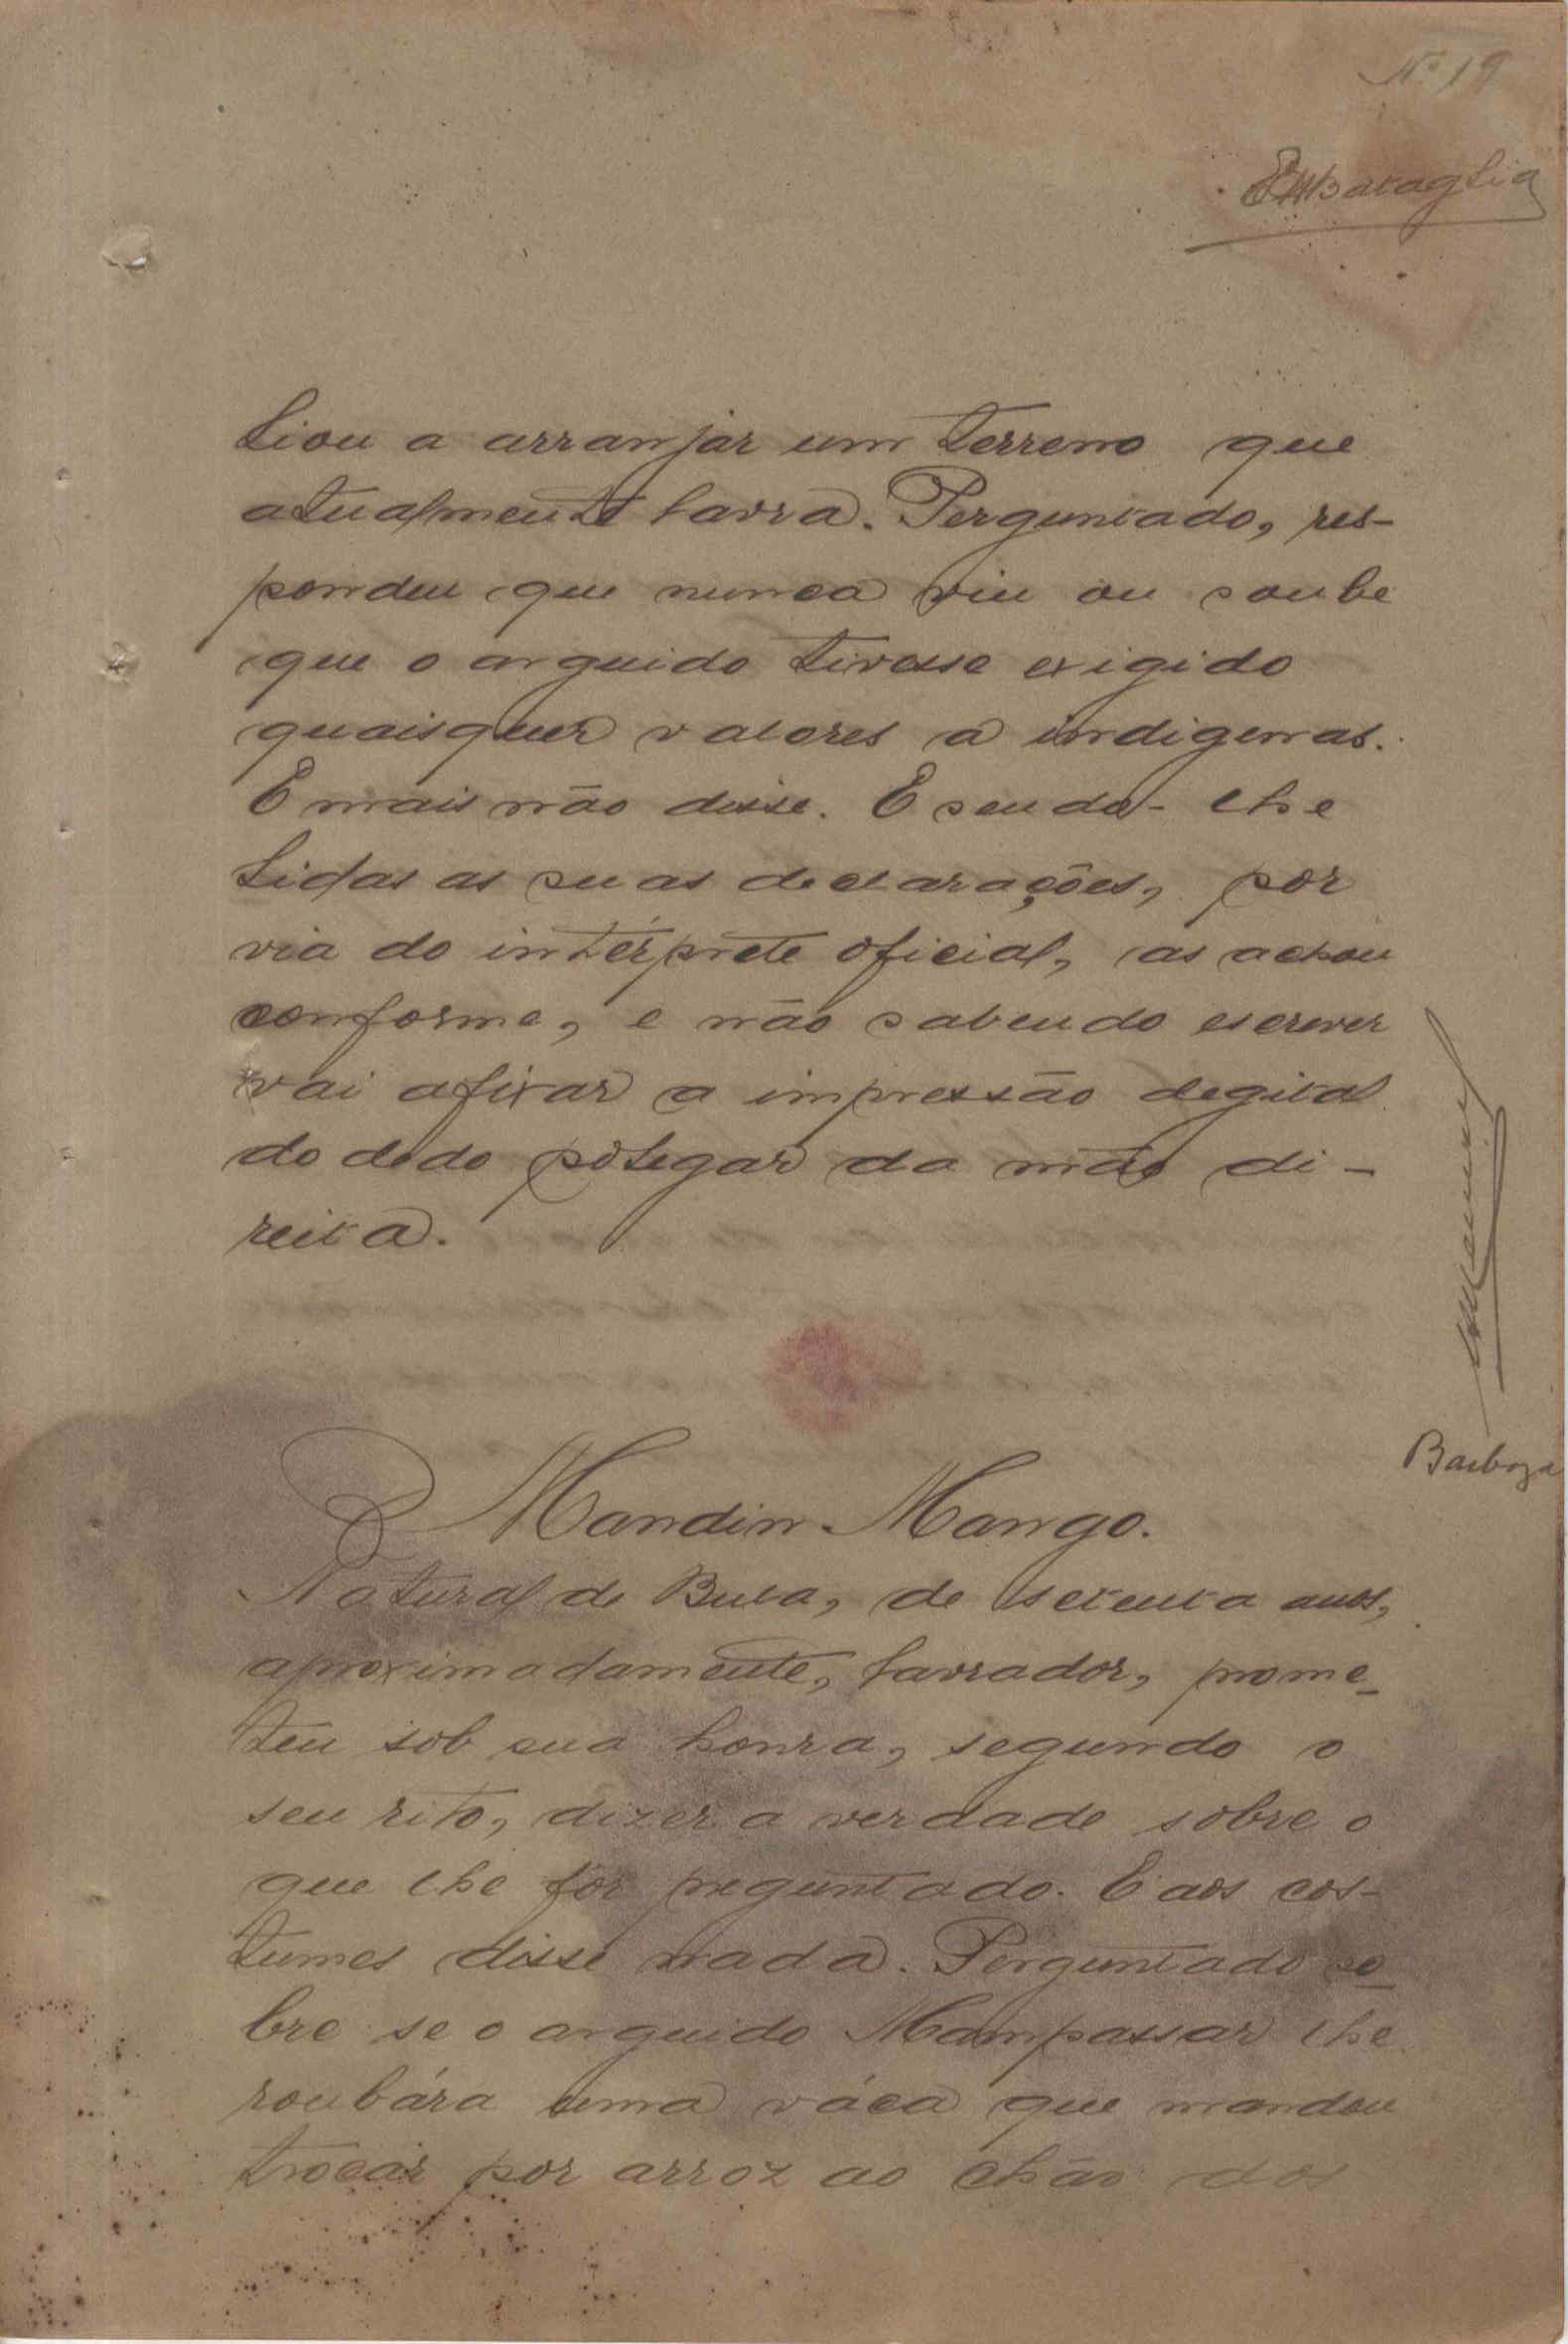 Nº 19
liou a arranjar um terreno que
atualmente lavra. Perguntado, res-
pondeu que nunca viu ou soube
que o arguido tivesse exigido
quaisquer valores a indigenas.
E mais não disse. E sendo-lhe
lidas as suas declarações, por
via do intérprete oficial, as achou
conforme, e não sabendo escrever
vai afixar a impressão degital
do dedo polegar da mão di-
reita.
Barboza
Mandin Mango.
Natural de Bula, de setenta anos,
aproximadamente, lavrador, prome-
teu sob sua honra, segundo o
seu rito, dizer a verdade sobre o
que lhe fôr preguntado. E aos cos-
tumes disse nada. Perguntado so-
bre se o arguido Mampassar lhe
roubára uma váca que mandou
trocar por arroz ao chão dos